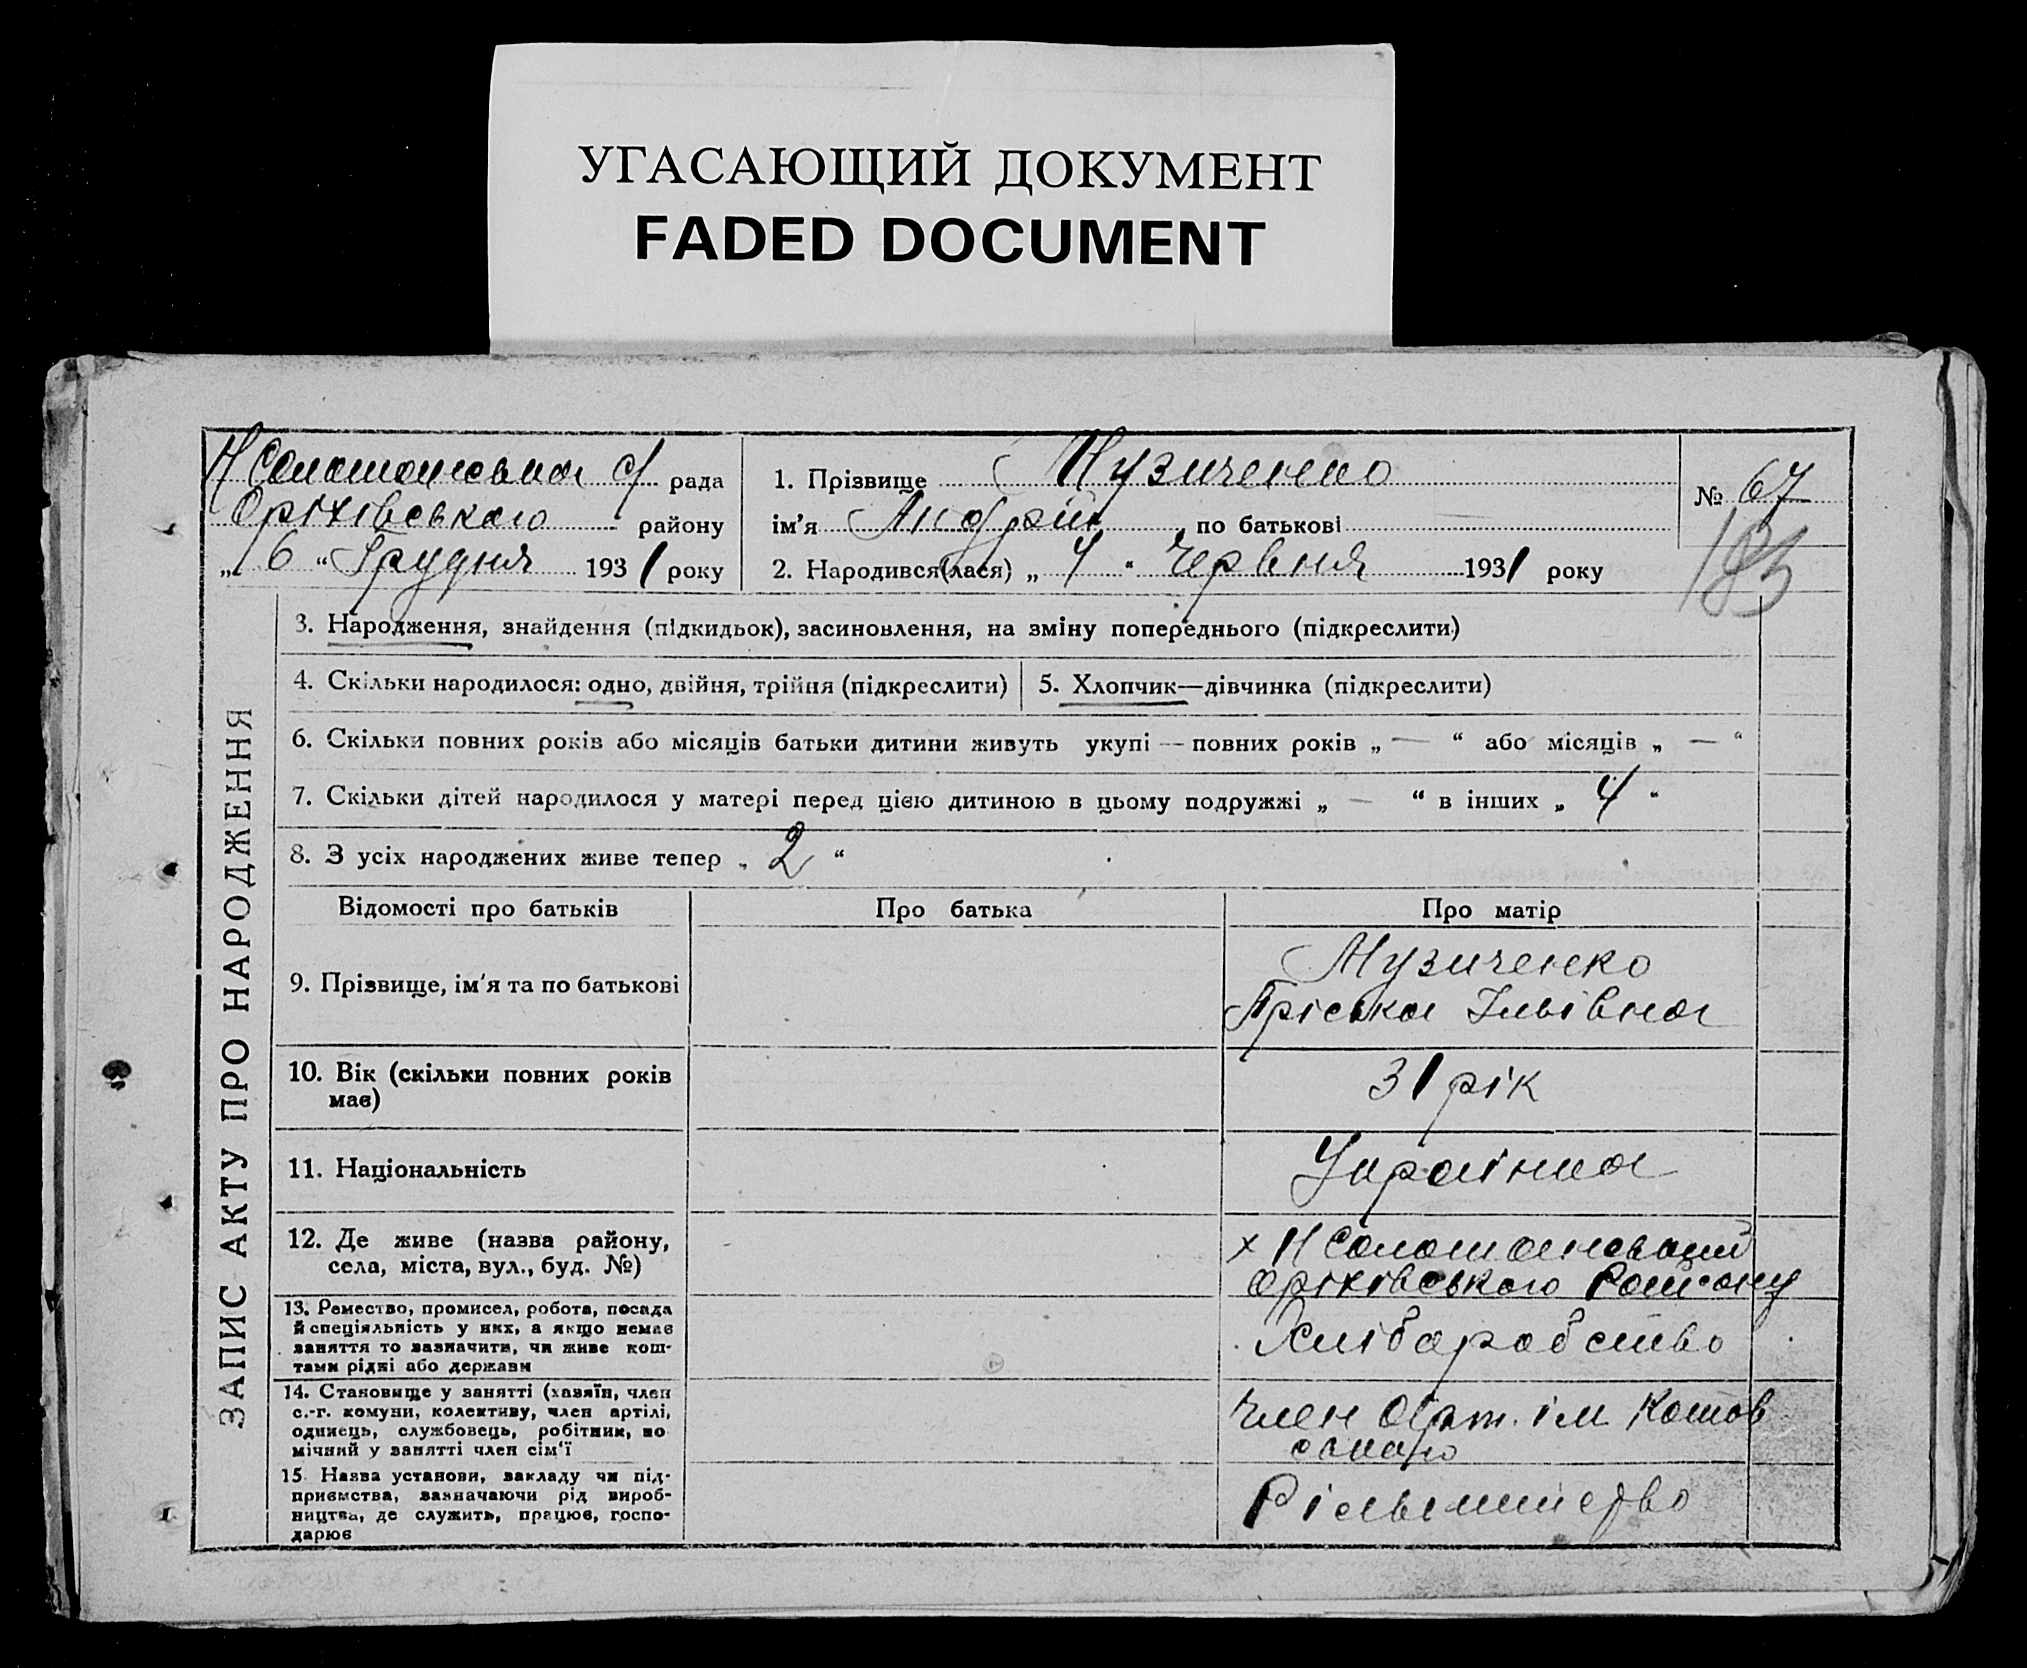 УГАСАЮЩИЙ ДОКУМЕНТ
FADED DOCUMENT
с/ рада
Оріхівського району
„ 6 “ Грудня 1931 року
1. Прізвище Музиченко
ім’я Андрій по батькові —
2. Народився(лася) „ 4 “ Червня 1931 року
№ 67
183
ЗАПИС АКТУ ПРО НАРОДЖЕННЯ
3. Народження, знайдення (підкидьок), засиновлення, на зміну попереднього (підкреслити)
4. Скільки народилося: одно, двійня, трійня (підкреслити)
5. Хлопчик—дівчинка (підкреслити)
6. Скільки повних років або місяців батьки дитини живуть укупі — повних років „ — “ або місяців „ — “
7. Скільки дітей народилося у матері перед цією дитиною в цьому подружжі „ — “ в інших „ 4 “
8. З усіх народжених живе тепер „ 2 “
Відомості про батьків
Про батька
Про матір
9. Прізвище, ім’я та по батькові
Музиченко
Пріська Ільівна
10. Вік (скільки повних років
має)
31 рік
11. Національність
Українка
12. Де живе (назва району,
села, міста, вул., буд. №)
х
Оріхівського Району
13. Ремество, промисел, робота, посада
й спеціяльність у них, а якщо немає
заняття то зазначити, чи живе кош-
тами рідні або держави
Хліборобство
14. Становище у занятті (хазяїн, член
с.-г. комуни, колективу, член артілі,
одинець, службовець, робітник, по-
мічний у занятті член сім’ї
Член Арт. ім
15. Назва установи, закладу чи під-
приємства, зазначаючи рід вироб-
ництва, де служить, працює, госпо-
дарює